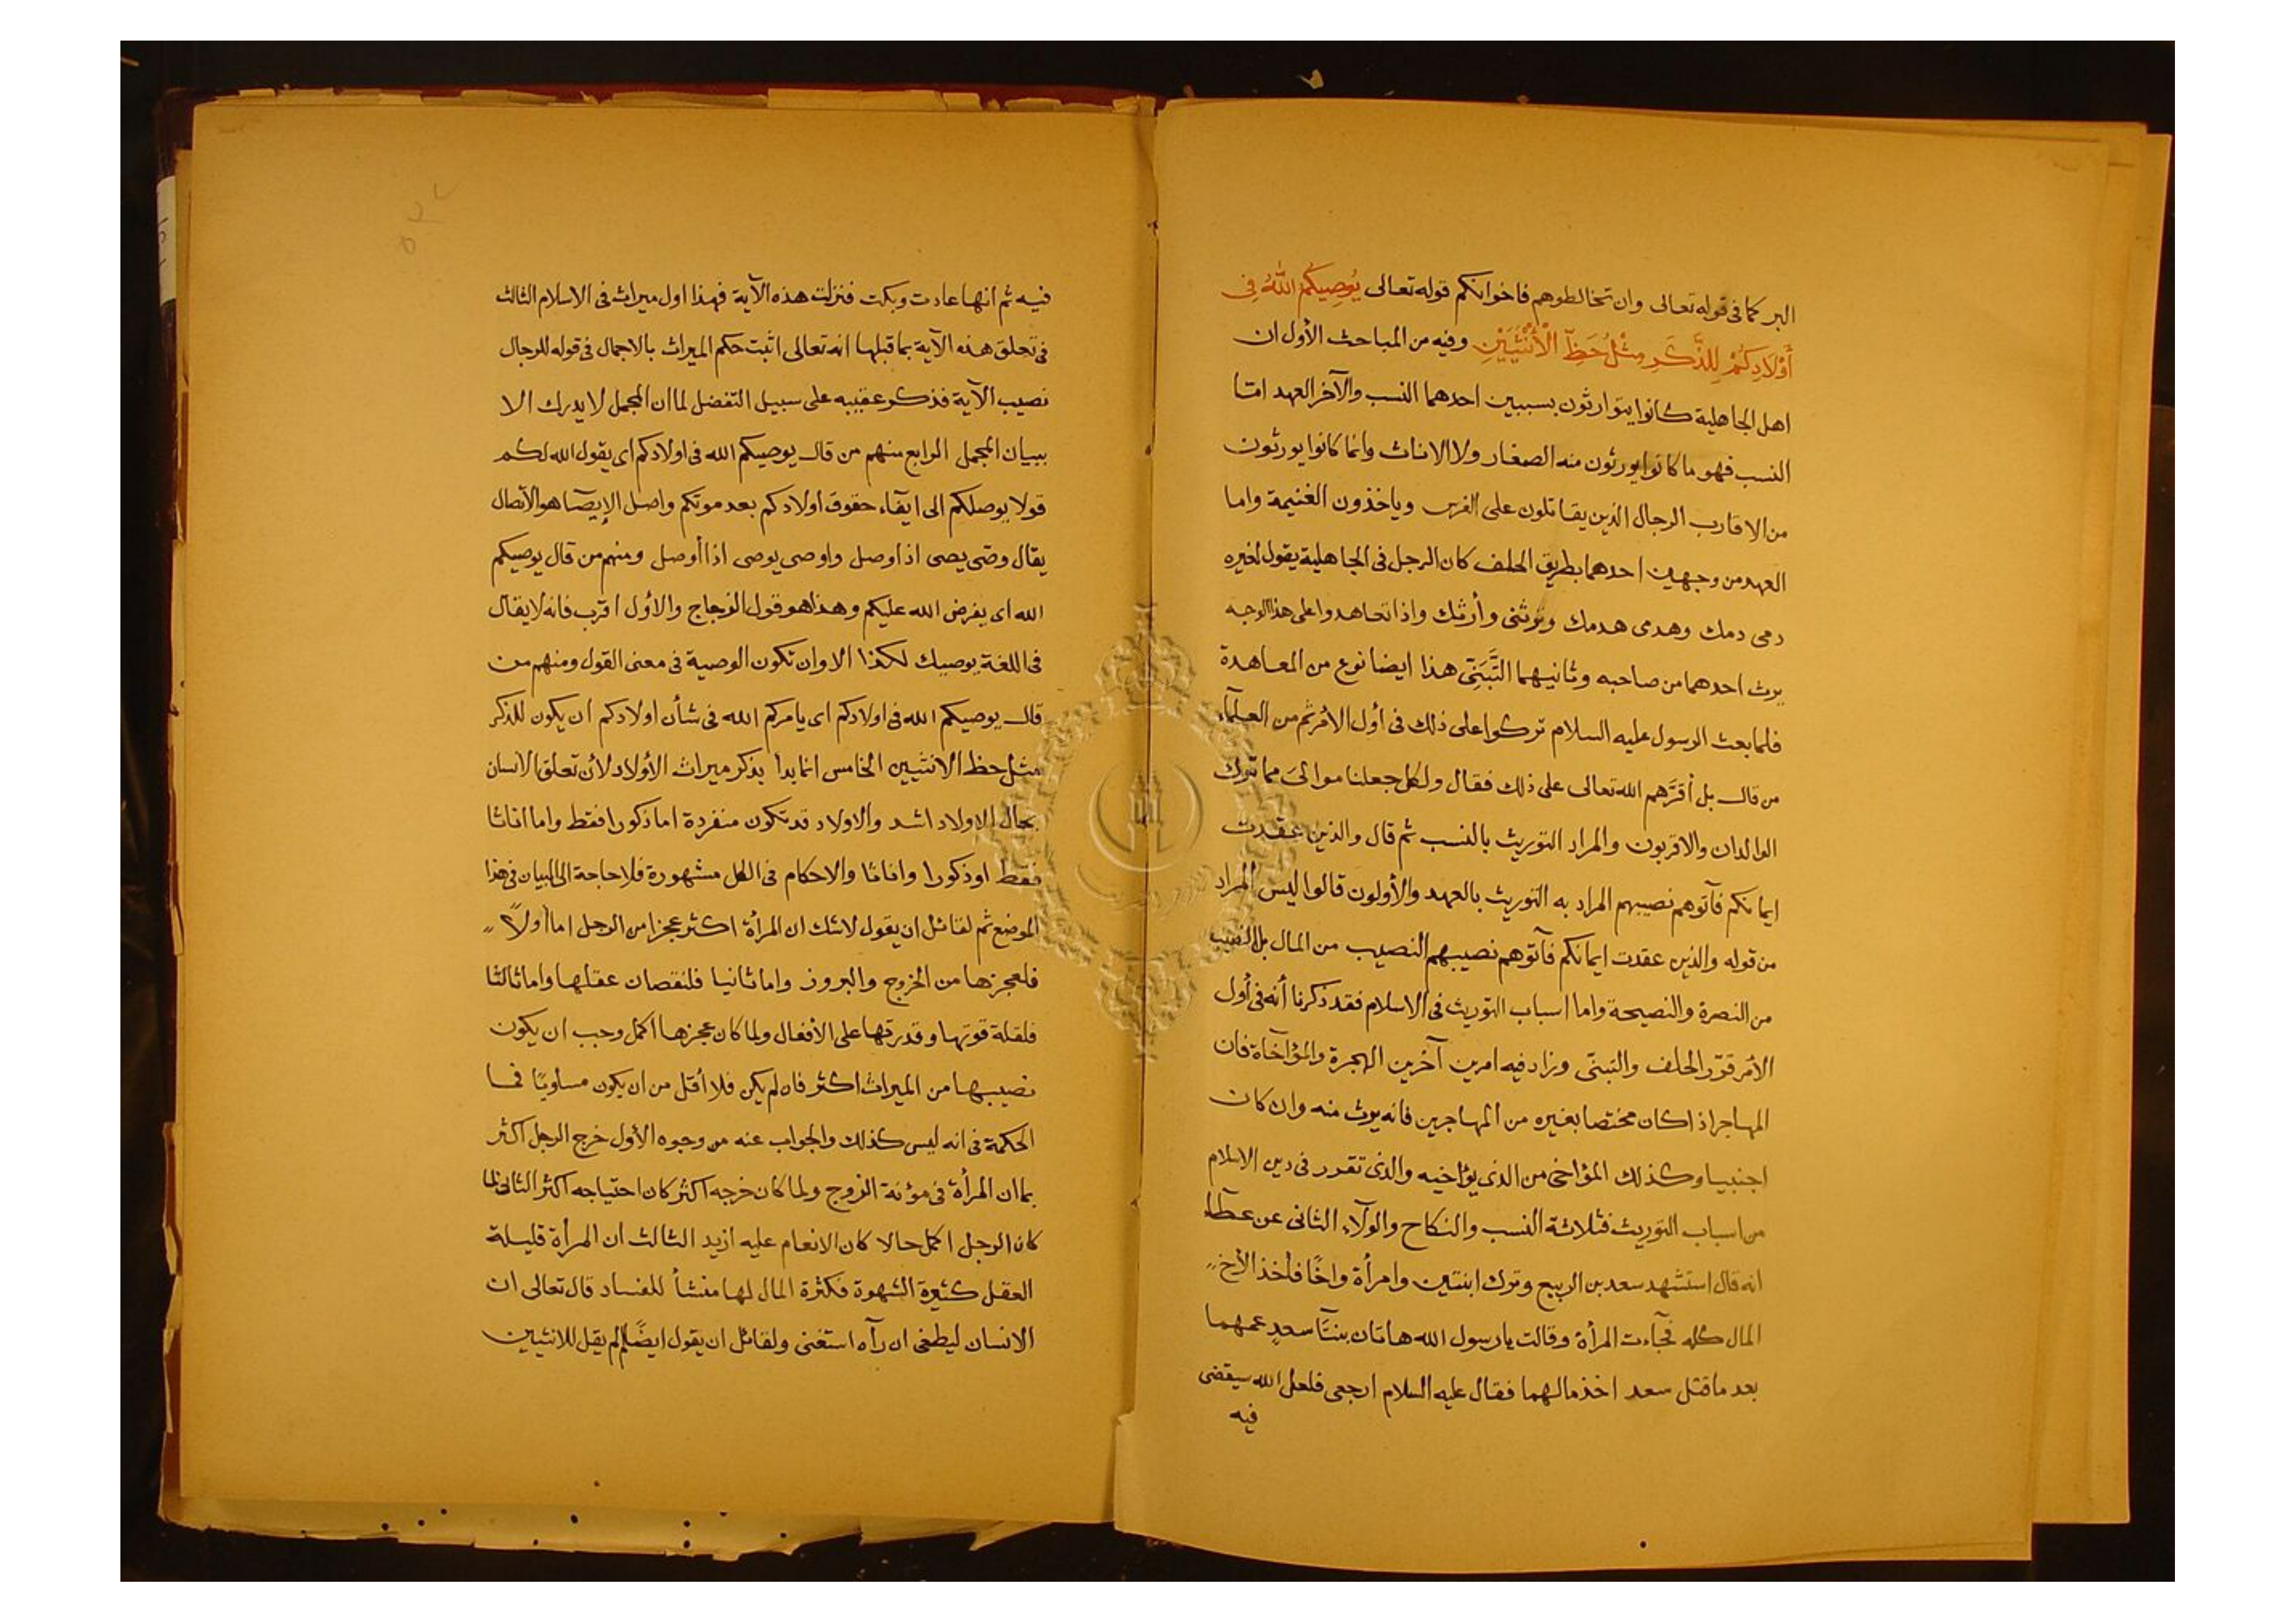 البر كما فى قوله تعالى وان تخالطوهم فاخوانكم قوله تعالى يُوصِيكُمُ اللهُ فِى
أَوْلَادِكُمْ لِلذَّكَرِ مِثْلُ حَظِّ الْأُنْثَيَيْنِ وفيه من المباحث الأول ان
اهل الجاهلية كانوا يتوارثون بسببين احدهما النسب والآخر العهد امّا
النسب فهو ما كانوا يورثون منه الصغار ولا الاناث وانما كانوا يورثون
من الاقارب الرجال الذين يقاتلون على الفرس وياخذون الغنيمة واما
العهد من وجهين احدهما بطريق الحلف كان الرجل فى الجاهلية يقول لغيره
دمى دمك وهدمى هدمك وترثنى وأرثك واذا تعاهدوا على هذا الوجه
يرث احدهما من صاحبه وثانيهما التَّبَنِّى هذا ايضا نوع من المعاهدة
فلما بعث الرسول عليه السلام تركوا على ذلك فى أول الأمر ثم من العلمآء
من قال بل أقرَّهم الله تعالى على ذلك فقال ولكل جعلنا موالىَ مما ترك
الوالدان والاقربون والمراد التوريث بالنسب ثم قال والذين عقدت
ايمانكم فآتوهم نصيبهم المراد به التوريث بالعهد والأولون قالوا ليس المراد
من قوله والذين عقدت ايمانكم فآتوهم نصيبهم النصيب من المال بل النصيب
من النصرة والنصيحة واما اسباب التوريث فى الاسلام فقد ذكرنا أنه فى أول
الأمر قرّر الحلف والتبنّى وزاد فيه امرين آخرين الهجرة والمؤاخاة فان
المهاجر اذا كان مختصا بغيره من المهاجرين فانه يرث منه وان كان
اجنبيا وكذلك المؤاخى من الذى يؤاخيه والذى تقرر فى دين الاسلام
من اسباب التوريث فثلاثة النسب والنكاح والولآء الثانى عن عطآء
انه قال استشهد سعد بن الربيع وترك ابنتين وامرأة واخًا فأخذ الأخ
المال كله فجآءت المرأة وقالت يا رسول الله هاتان بنتَا سعدٍ عمهما
بعد ما قتل سعد اخذ مالهما فقال عليه السلام ارجعى فلعل الله سيقضى
فيه
فيه ثم انها عادت وبكت فنزلت هذه الآية فهذا اول ميراث فى الاسلام الثالث
فى تعلق هذه الآية بما قبلها انه تعالى اثبت حكم الميراث بالاجمال فى قوله للرجال
نصيب الآية فذكر عقيبه على سبيل التفضل لما ان المجمل لا يدرك الا
ببيان المجمل الرابع منهم من قال يوصيكم الله فى اولادكم اى يقول الله لكم
قولا يوصلكم الى ايفآء حقوق اولادكم بعد موتكم واصل الإيصآ هو الأتصال
يقال وصّى يصى اذا وصل واوصى يوصى اذا أوصل ومنهم من قال يوصيكم
الله اى يفرض الله عليكم وهذا هو قول الزجاج والأول اقرب فانه لا يقال
فى اللغة يوصيك لكذا الا وان تكون الوصية فى معنى القول ومنهم من
قال يوصيكم الله فى اولادكم اى يامركم الله فى شأن اولادكم ان يكون للذكر
مثل حظ الانثيين الخامس انما بدأ بذكر ميراث الأولاد لأن تعلق الانسان
بحال الاولاد اشد والاولاد قد تكون منفردة اما ذكورا فقط واما اناثا
فقط او ذكورا واناثا والاحكام فى الكل مشهورة فلا حاجة الى البيان فى هذا
الموضع ثم لقائل ان يقول لا شك ان المرأة اكثر عجزا من الرجل اما أولاً
فلعجزها من الخروج والبروز واما ثانيا فلنقصان عقلها واما ثالثا
فلقلة قوتها وقدرتها على الأفعال ولما كان عجزها اكمل وجب ان يكون
نصيبها من الميراث اكثر فان لم يكن فلا أقل من ان يكون مساويًا فما
الحكمة فى انه ليس كذلك والجواب عنه من وجوه الأول خرج الرجل اكثر
بما ان المرأة فى مؤنة الزوج ولما كان خرجه اكثر كان احتياجه اكثر الثانى لما
كان الرجل اكمل حالا كان الانعام عليه ازيد الثالث ان المرأة قليلة
العقل كثيرة الشهوة فكثرة المال لها منشأ للفساد قال تعالى ان
الانسان ليطغى ان رآه استغنى ولقائل ان يقول ايضًا لم لم يقل للانثيين